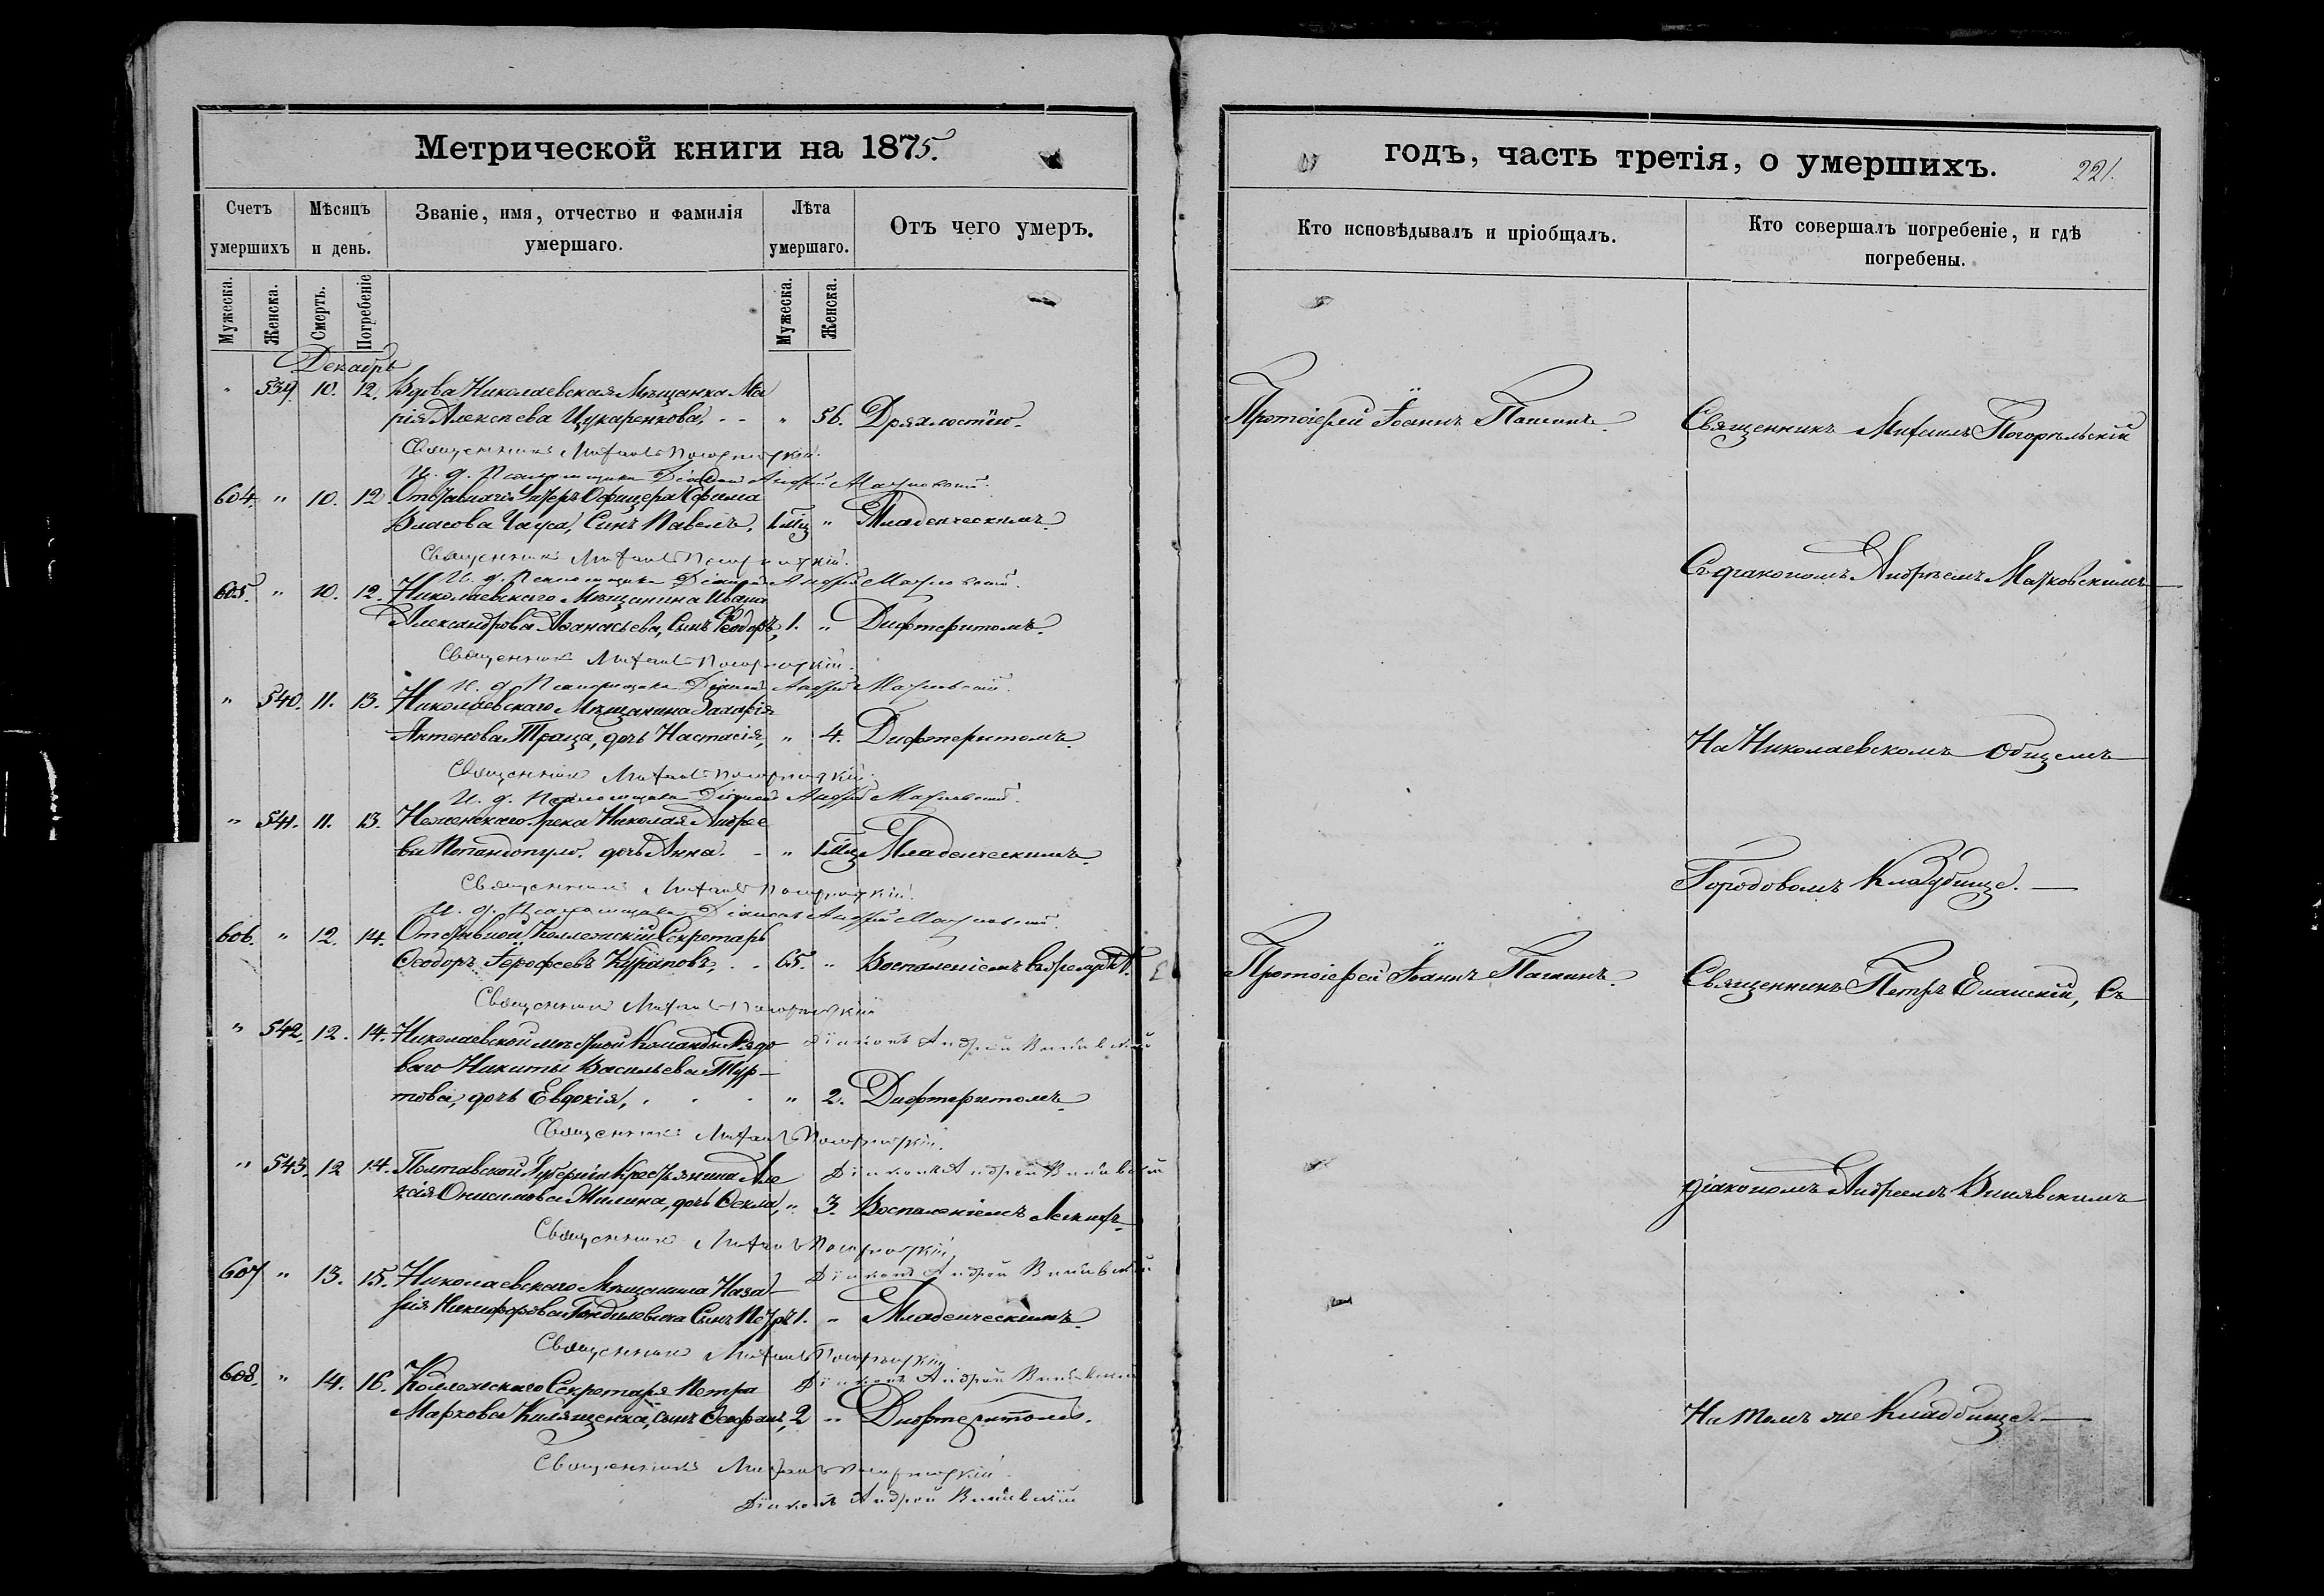 Метрической книги на 1875.
Счетъ умершихъ
Мѣсяцъ и день.
Званіе, имя, отчество и фамилія умершаго.
Лѣта умершаго.
Отъ чего умеръ.
Мужеска. Женска. Смерть. Погребеніе Мужеска. Женска.
Декабрь
" 539. 10. 12. Вдова Николаевская Мѣщанка Ма
рія Алексѣева Цукаренкова, " 56. Дряхлостію.
Священникъ Михаилъ Погорѣльскій
И. д. Псаломщика Діаконъ Андрей
604. " 10. 12. Унтеръ Офицера Ефима
Власова Чауса, Сынъ Павелъ, 1 мѣц " Младенческимъ.
Священникъ Михаилъ Погорѣльскій
И. д. Псаломщика Діаконъ Андрей
605. " 10. 12. Николаевскаго Мѣщанина Ивана
Александрова Аѳанасьева, Сынъ Ѳеодоръ, 1. " Дифтеритомъ.
Священникъ Михаилъ Погорѣльскій
И. д. Псаломщика Діаконъ Андрей
" 540. 11. 13. Николаевскаго Мѣщанина Захарія
Антонова Траца, дочь Настасія, " 4. Дифтеритомъ.
Священникъ Михаилъ Погорѣльскій
И. д. Псаломщика Діаконъ Андрей
" 541. 11. 13. Неженскаго Грека Николая Андрее
ва Попандопуло. дочь Анна. " 1 мѣц Младенческимъ.
Священникъ Михаилъ Погорѣльскій
И. д. Псаломщика Діаконъ Андрей
606. " 12. 14. Отставной Коллежскій Секретарь
Ѳеодоръ Іероѳеевъ 65. " Воспаленіемъ
Священникъ Михаилъ Погорѣльскій
" 542. 12. 14. Николаевской мѣстной Команды Рядо
Діаконъ Андрей
ваго Никиты Васильева Тур-
това, дочь Евдокія, " 2. Дифтеритомъ.
Священникъ Михаилъ Погорѣльскій
" 543. 12 14. Полтавской Губерніи Крестьянина Але
Діаконъ Андрей
ксія Онисимова Милина, дочь Ѳекла, " 3. Воспаленіемъ легкихъ
Священникъ Михаилъ Погорѣльскій
607 " 13. 15. Николаевскаго Мѣщанина Наза
Діаконъ Андрей
рія Никифорова Сынъ Петръ 1. " Младенческимъ.
Священникъ Михаилъ Погорѣльскій
608. " 14. 16. Коллежскаго Секретаря Петра
Діаконъ Андрей
Маркова сынъ 2 " Дифтеритомъ.
Священникъ Михаилъ Погорѣльскій
Діаконъ Андрей
годъ, часть третія, о умершихъ.
221.
Кто исповѣдывалъ и пріобщалъ.
Кто совершалъ погребеніе, и гдѣ погребены.
Протоіерей Іоаннъ
Священникъ Михаилъ Погорѣльскій
Съ діакономъ Андреемъ
На Николаевскомъ Общемъ
Городовомъ Кладбище.
Протоіерей Іоаннъ
Священникъ Петръ Съ
діакономъ Андреемъ
На томъ же Кладбище.